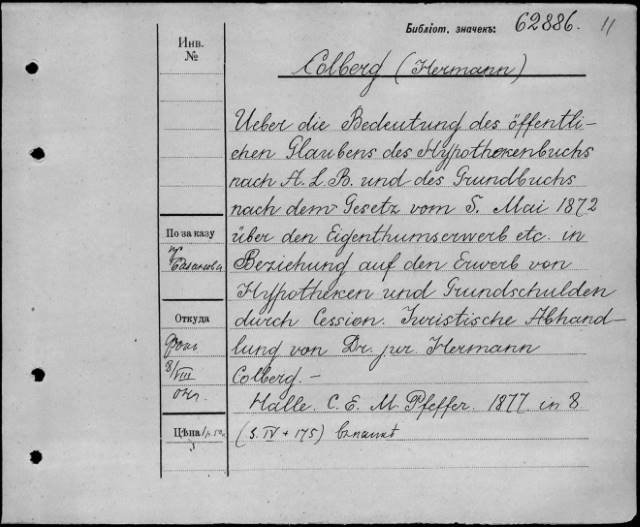 Библіот. значекъ: 62886. 11
Инв.
№
Colberg (Hermann)
Ueber die Bedeutung des öffentli-
chen Glaubens des Hypothekenbuchs
nach A. L. B. und des Grundbuchs
nach dem Gesetz vom 5. Mai 1872
über den Eigenthumserwerb etc. in
Beziehung auf den Erwerb von
Hypotheken und Grundschulden
durch Cession. Juristische Abhand-
lung von Dr. jur. Hermann
Colberg. —
Halle. C. E. M. Pfeffer. 1877. in 8
(S. IV + 175)
По заказу
Откуда
8/VIII
Цѣна